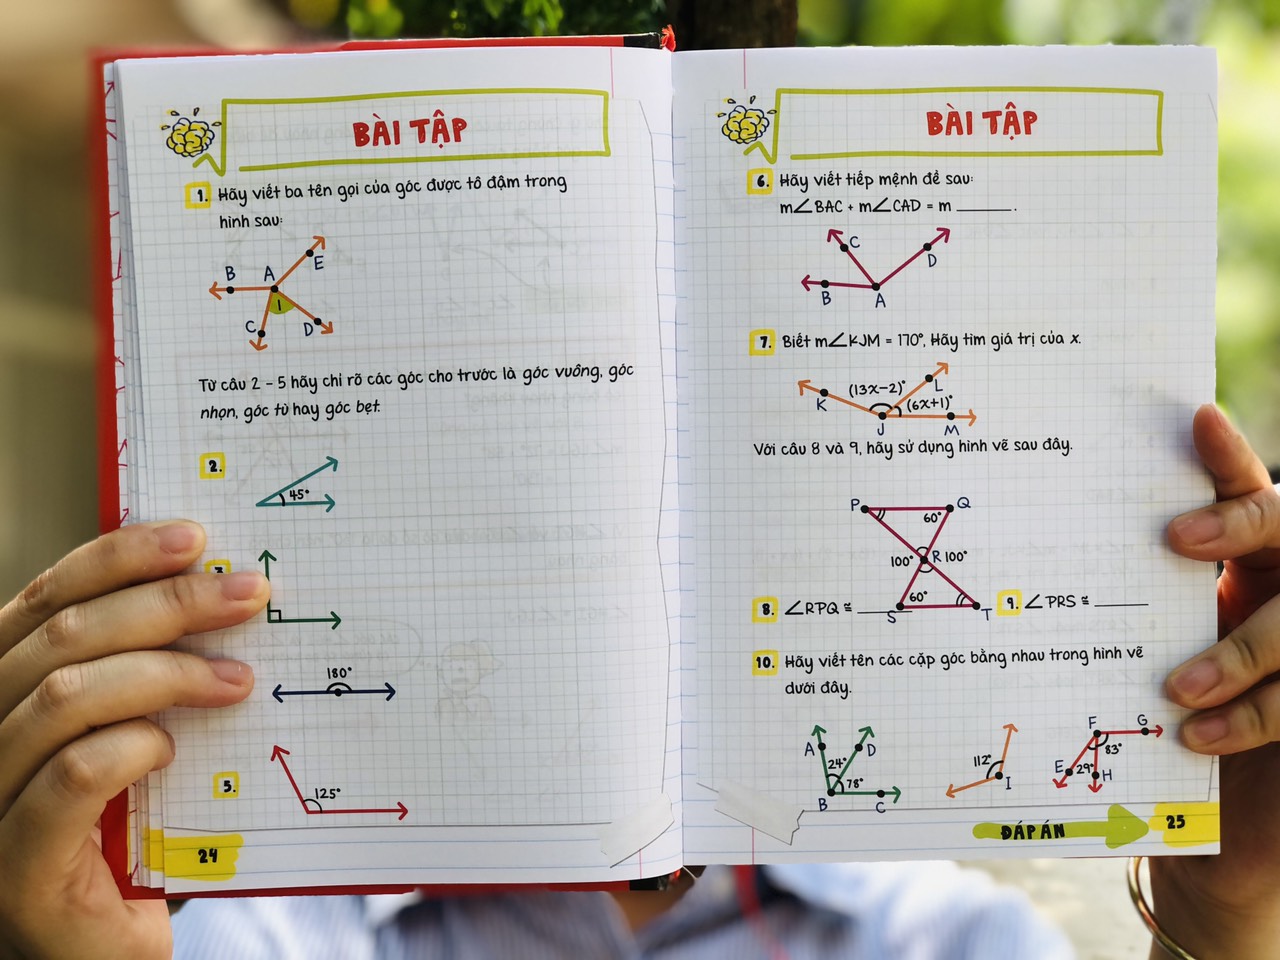 BÀI TẬP
1. Hãy viết ba tên gọi của góc được tô đậm trong
hình sau:
B A E
1
C D
Từ câu 2 - 5 hãy chỉ rõ các góc cho trước là góc vuông, góc
nhọn, góc tù hay góc bẹt.
2.
45°
180°
5.
125°
24
BÀI TẬP
6. Hãy viết tiếp mệnh đề sau:
m∠BAC + m∠CAD = m ______.
C D
B A
7. Biết m∠KJM = 170°, Hãy tìm giá trị của x.
(13x-2)° L
K (6x+1)°
J M
Với câu 8 và 9, hãy sử dụng hình vẽ sau đây.
P Q
60°
100° R 100°
60°
S T
8. ∠RPQ ≅ ______ 9. ∠PRS ≅ ______
10. Hãy viết tên các cặp góc bằng nhau trong hình vẽ
dưới đây.
A D
24°
78°
B C
112°
I
F G
83°
E 29° H
ĐÁP ÁN
25